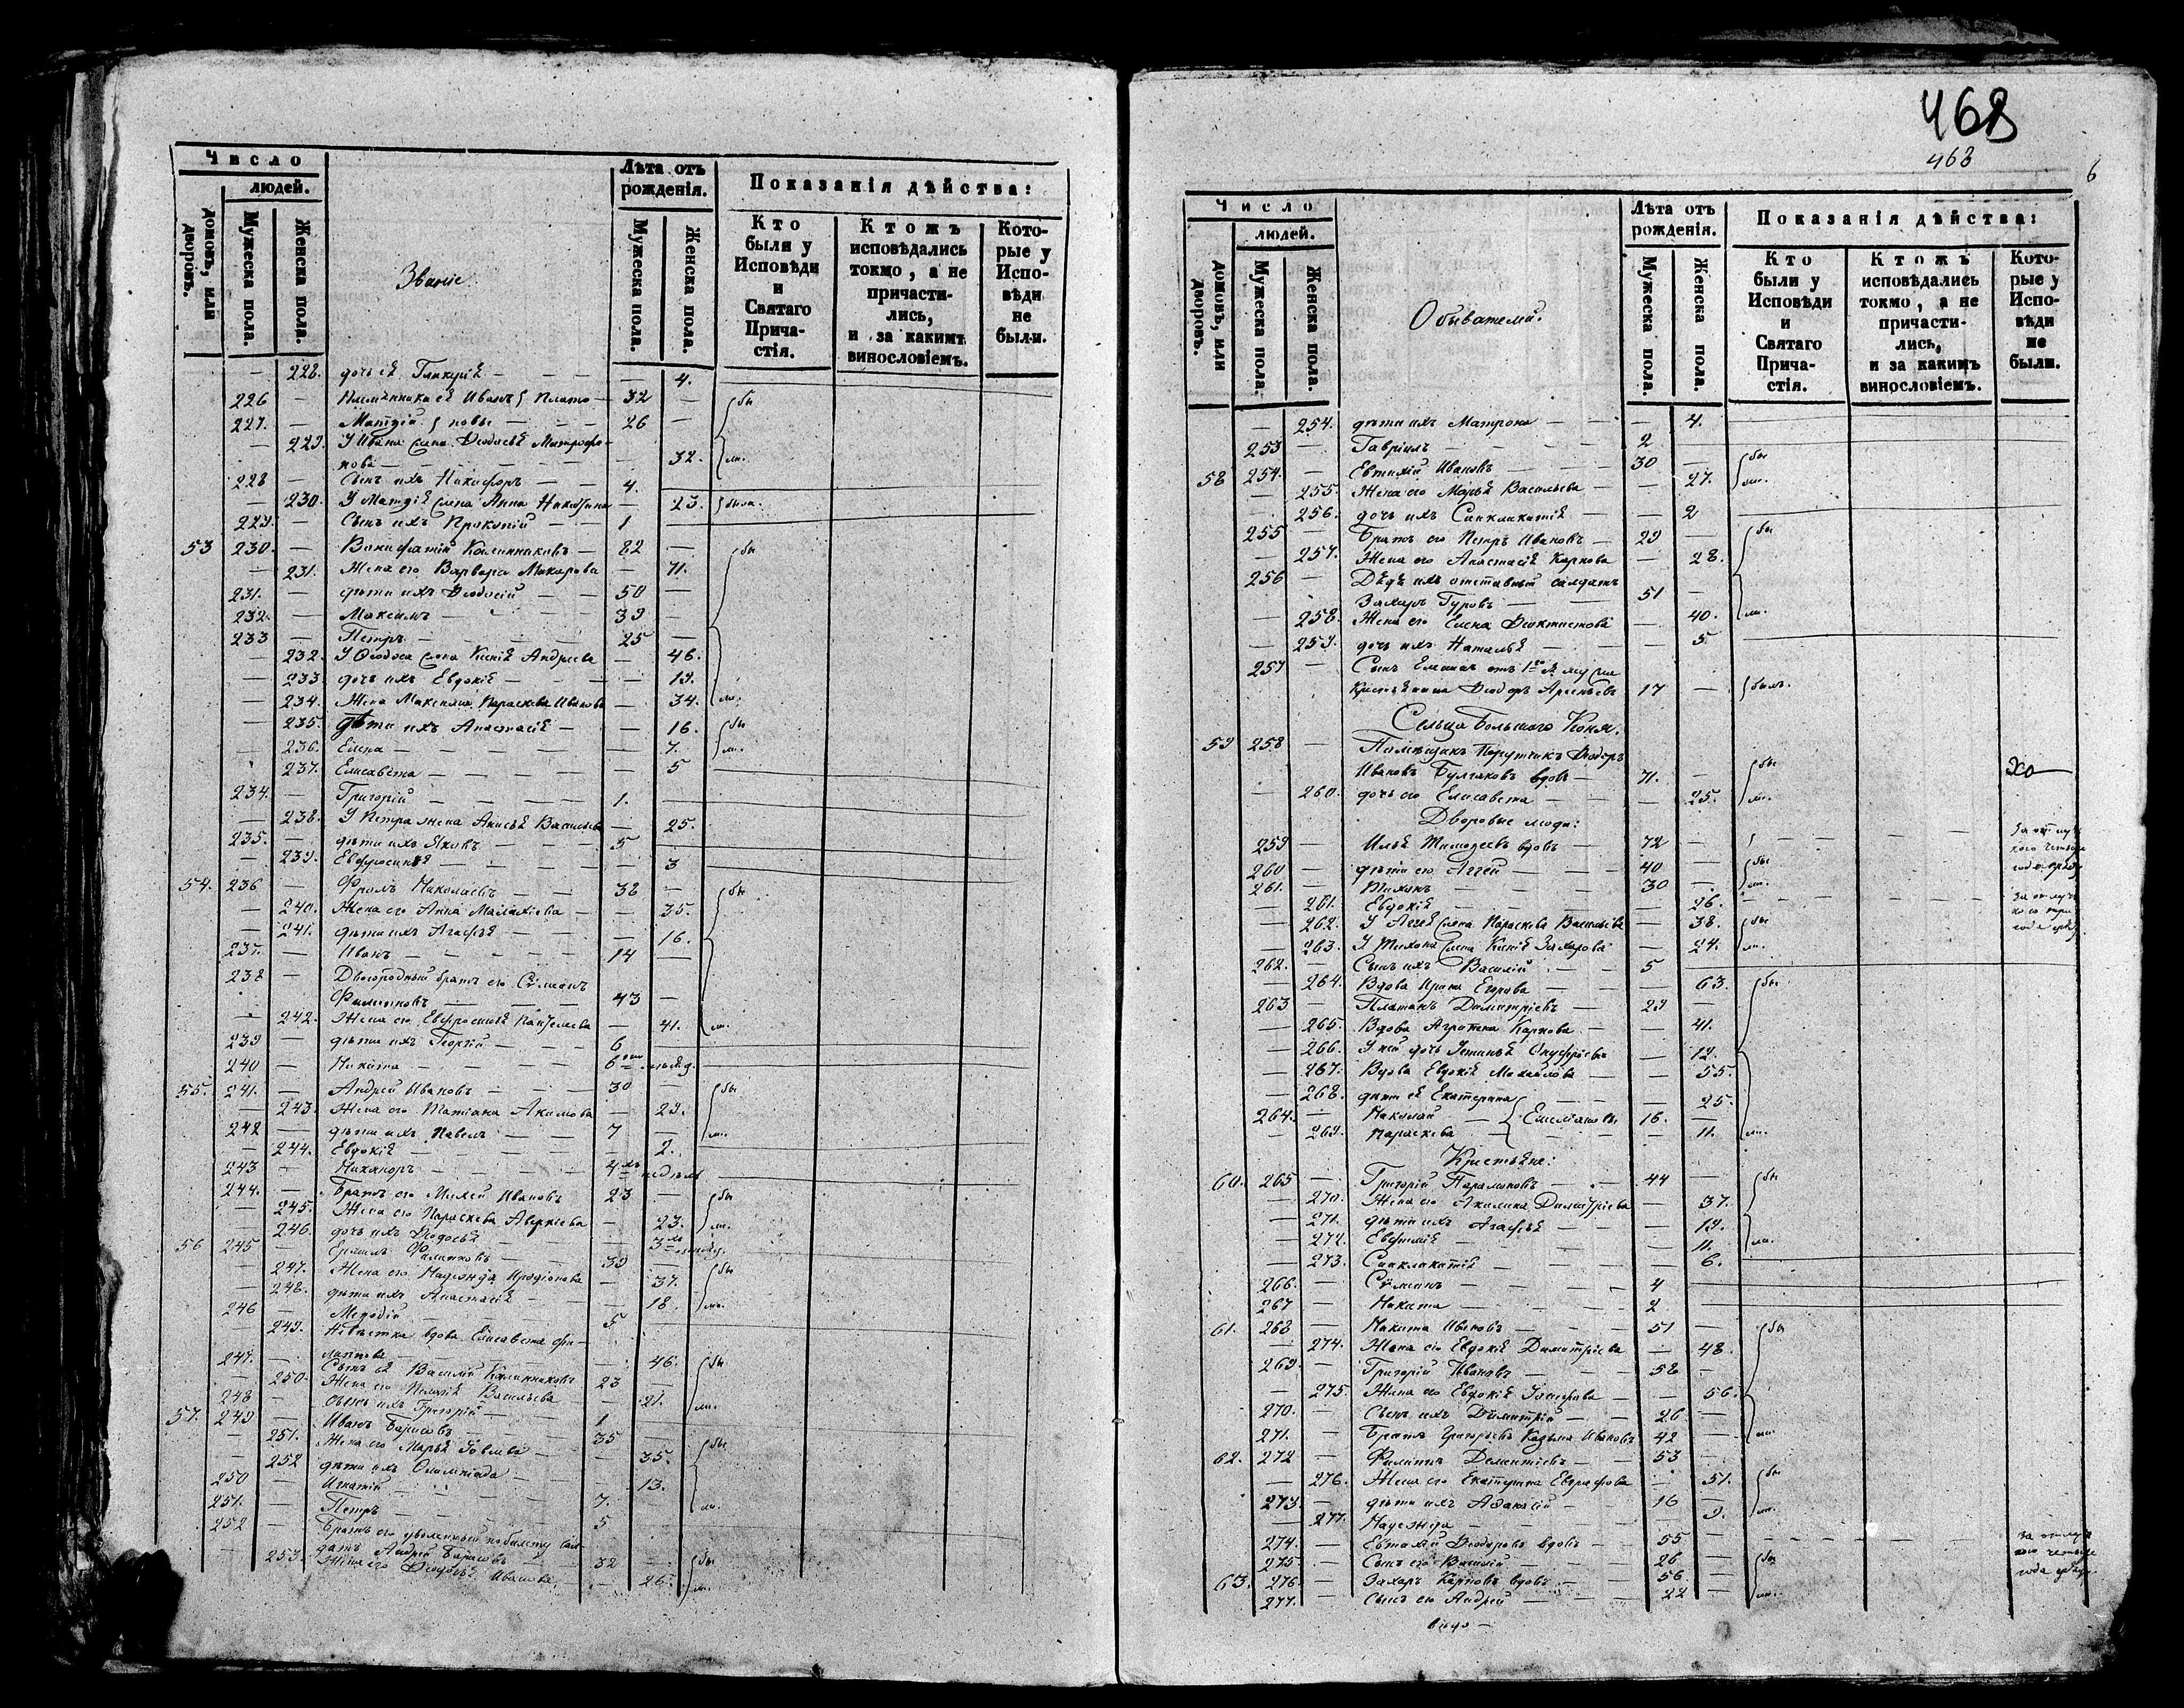 Число
людей.
домовъ, или дворовъ.
Мужеска пола.
Женска пола.
Званіе.
Лѣта отъ рожденія.
Мужеска пола.
Женска пола.
Показанія дѣйства:
Кто были у Исповѣди и Святаго Прича-стія.
Ктожъ исповѣдались токмо, а не причасти-лись, и за какимъ винословіемъ.
Кото-рые у Испо-вѣди не были.
228. дочь ея Гликерія — 4.
226 — Племянника ея Иванъ Плато- 32 — бы
227. — Матѳій новы — 26 —
229. У Ивана жена Ѳеодосья Митрофа-
нова — 32. ли.
228 — Сынъ ихъ Никифоръ — 4.
230. У Матѳія жена Анна — 23. была.
229. — Сынъ ихъ Прокопій — 1.
53 230. — Вонифатій Калинниковъ — 82 — бы
231. Жена его Варвара Макарова — 71.
231. — дѣти ихъ Ѳеодосій — 50 —
232. — Максимъ — 39 —
233 — Петръ — 25 —
232. У Ѳеодосія жена Ксенія Андреева — 46.
233. дочь ихъ Евдокія — 19.
234. Жена Максима Параскева Иванова — 34. ли.
235. дѣти ихъ Анастасія — 16. бы
236. Елена — 7. ли.
237. Елисавета — 5
234. — Григорій — 1.
238. У Петра жена Анисья Васильева — 25.
235. — дѣти ихъ Яковъ — 5
239. Евфросинія — 3
54. 236 — Фролъ Николаевъ — 38 — бы
240. Жена его Анна Малахіева — 35.
241. дѣти ихъ Агафья — 16.
237. — Иванъ — 14 —
238 — Двоюродный братъ его Сѵмеонъ
Филиповъ — 43 —
242. Жена его Евфросинія Пантелеева — 41. ли.
239 — дѣти ихъ Георгій — 6
240 — Никита — 6
55. 241. — Андрей Ивановъ — 30 — бы
243. Жена его Татіана Акимова — 29.
242 — дѣти ихъ Павелъ — 7 — ли.
244. Евдокія — 2.
243 — Никаноръ — 4 недѣль
244. — Братъ его Ивановъ 23 — бы
245. Жена его Параскева Аверкіева — 23. ли.
246. дочь ихъ Ѳеодосья — 3
56 245 — Филиповъ — 39 —
247. Жена его Надежда Иродіонова — 37. бы
248. дѣти ихъ Анастасія — 18. ли.
246 — Меѳодій — 5
249. Невѣстка вдова Елисавета Фи-
липпова — 46. бы
247. — Сынъ ея Василій Калинниковъ 23 —
250. Жена его Пелагія Васильева — 21. ли.
248 — сынъ ихъ Григорій — 1
57. 249 — Иванъ Борисовъ — 35 —
251. Жена его Марья — 35. бы
252 дѣти ихъ Олимпіада — 13.
250 — Игнатій — 7. ли.
251. — Петръ — 5
252 — Братъ его уволенный по билету сол-
датъ Андрей Борисовъ — 32 — бы
253. Жена его Ѳеодосья Иванова — 26. ли.
468
463
6
Число
людей.
домовъ, или дворовъ.
Мужеска пола.
Женска пола.
Обыватели.
Лѣта отъ рожденія.
Мужеска пола.
Женска пола.
Показанія дѣйства:
Кто были у Исповѣди и Святаго Прича-стія.
Ктожъ исповѣдались токмо, а не причасти-лись, и за какимъ винословіемъ.
Кото-рые у Испо-вѣди не были.
254. дѣти ихъ Матрона — 4.
253 — Гавріилъ — 2
58 254. — Евтихій Ивановъ — 30 — бы
255. Жена его Марья Васильева — 27. ли.
256. дочь ихъ Синклитикія — 2
255 — Братъ его Петръ Ивановъ — 29 — бы
257. Жена его Анастасія Карпова — 28.
256 — Дѣдъ ихъ отставный солдатъ
Захаръ Гуровъ — 51 —
258. Жена его Елена Ѳеоктистова — 40. ли.
259. дочь ихъ Наталья — 5.
257 — Сынъ отъ 1го
Ѳеодоръ Арсеньевъ 17 — былъ.
Сельца Большаго Коня.
59 258 — Помѣщикъ Порутчикъ Ѳеодоръ
Ивановъ Булгаковъ вдовъ — 71. — бы
260. дочь его Елисавета — 25. ли.
Дворовые люди:
259 — Илья Тимоѳеевъ вдовъ — 72 — за отлуч
кою четыре
года сряду
260 — дѣти его Аггей — 40 — бы
261. — Тихонъ — 30 — ли.
261. Евдокія — 26. за отлуч
кою три
года сряду
262. У Аггея жена Параскева Васильева — 38. бы
263. У Тихона жена Ксенія Захарова — 24. ли.
262. — Сынъ ихъ Василій — 5
264. Вдова Ирина Егорова — 63. бы
263 — Платонъ Димитріевъ — 29 —
265. Вдова Агрипина Карпова — 41.
266. У ней дочь Устинья Онуфріева — 19.
267. Вдова Евдокія Михайлова — 55.
268. дѣти ея Екатерина — 25.
264. — Николай — Емельяновы 16. —
269. Параскева — 11. ли.
Крестьяне:
60. 265 — Григорій Парамоновъ — 44 — бы
270. Жена его Акилина Димитріева — 37.
271. дѣти ихъ Агафья — 19.
272. Евфимія — 11. ли.
273. Синклитикія — 6.
266. — Сѵмеонъ — 4
267 — Никита — 2
61. 268 — Никита Ивановъ — 51 — бы
274. Жена его Евдокія Димитріева — 48.
269. — Григорій Ивановъ — 58 —
275. Жена его Евдокія — 56.
270. — Сынъ ихъ Димитрій — 26 —
271. — Братъ Григорьевъ Козьма Ивановъ 42 — ли.
62. 272 — Филипъ Дементіевъ — 53 —
276. Жена его Екатерина Евграфова — 51. бы
273. — дѣти ихъ Аѳанасій — 16 —
277. Надежда — 9. ли.
274. — Евтихій Ѳеодоровъ вдовъ — 55 — за отлуч
кою четыре
года сряду
275. — Сынъ его Василій — 26 — бы
63. 276. — Захаръ Карповъ вдовъ — 56 —
277. — Сынъ его Андрей — 22 — ли.